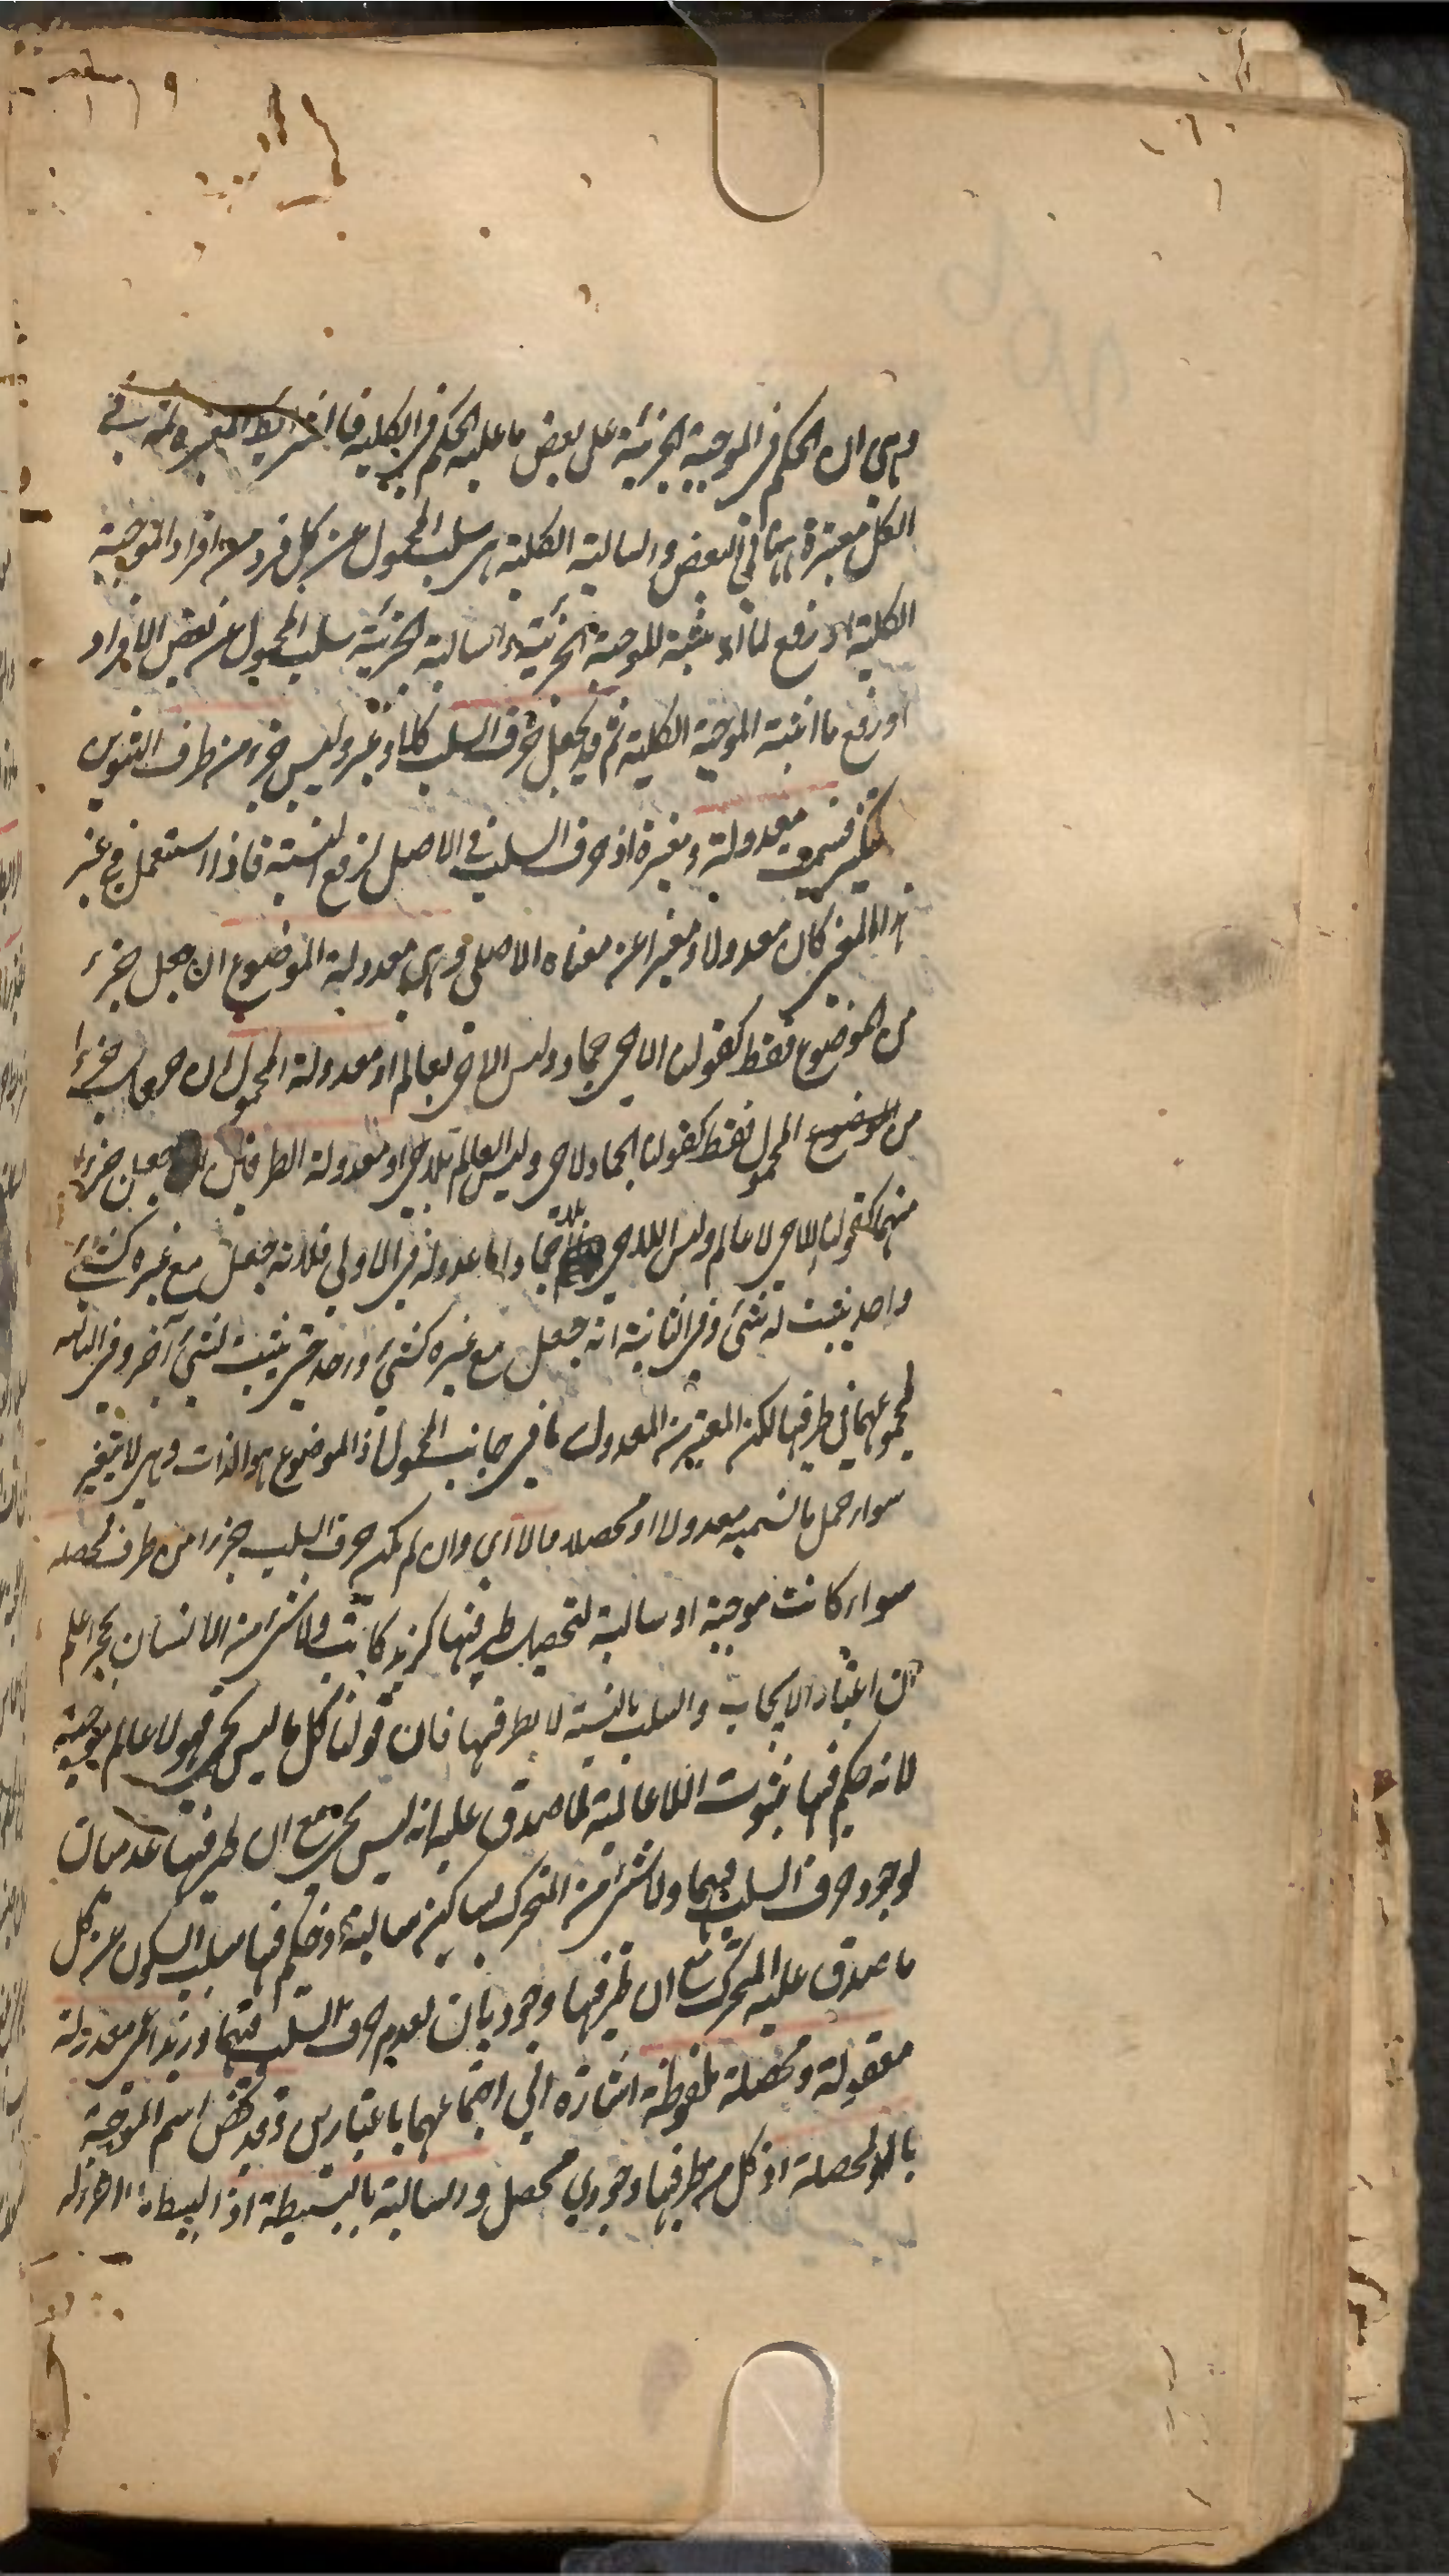 وهي ان الحكم في الموجبة الجزئية على بعض ما عليه الحكم في الكلية فالشرايط المعتبرة ثمه في
الكل معتبرة ههنا في البعض والسالبة الكلية هي سلب المحمول عن كل فرد من افراد الموجبة
الكلية او رفع لما اثبته للموجبة الجزئية والسالبة الجزئية سلب المحمول عن بعض الافراد
او رفع ما اثبته الموجبة الكلية ثم قد يجعل حرف السلب كلا وغير وليس جزء من طرف
فسميت معدولة ومغيرة اذ حرف السلب في الاصل لرفع النسبة فاذا استعمل في غير
هذا المعنى كان معدولا ومغيرا عن معناه الاصلي وهي معدولة الموضوع ان جعل جزء
من الموضوع فقط كقولنا اللاحي جماد وليس اللاحي بعالم او معدولة المحمول ان جعل جزءا
من الموضوع المحمول فقط كقولنا الجماد لاحي وليس العالم بلاحي او معدولة الطرفين جعل جزءا
منهما كقولنا اللاحي لا عالم وليس اللاحي بلا جماد اما عدوله في الاولى فلانه جعل مع غيره كشئ
واحد يثبت له شئ وفي الثانية انه جعل مع غيره كشئ واحد حتى يثبت لشئ آخر وفي الثالثه
لمجموعهما في طرفيها لكن المعتبر من المعدول ما في جانب المحمول اذ الموضوع هو الذات وهي لا يتغير
سواء حمل بالنسبة معدولا او محصلا مالا اي وان لم يكن حرف السلب جزءا من طرف محصله
سواء كانت موجبة او سالبة لتحصيل طرفيها كزيد كاتب ولا شئ من الانسان بحجر اعلم
ان اعتبار الايجاب والسلب بالنسبة لا بطرفيها فان قولنا كل ما ليس بحي فهو لا عالم موجبة
لانه حكم فيها بثبوت اللاعالمية لما صدق عليه انه ليس بحي مع ان طرفيها عدميان
لوجود حرف السلب فيهما ولا شئ من المتحرك بساكن سالبة وحكم فيها بسلب السكون عن كل
ما صدق عليه المتحرك مع ان طرفيها وجوديان لعدم حرف السلب فيهما وزيد اعمى معدولة
معقولة ومحصلة ملفوظة اشارة الى اجتماعهما باعتبارين وقد تخص اسم الموجبة
بالمحصلة اذ كل من طرفيها وجودي محصل والسالبة بالبسيطة اذ البسيط